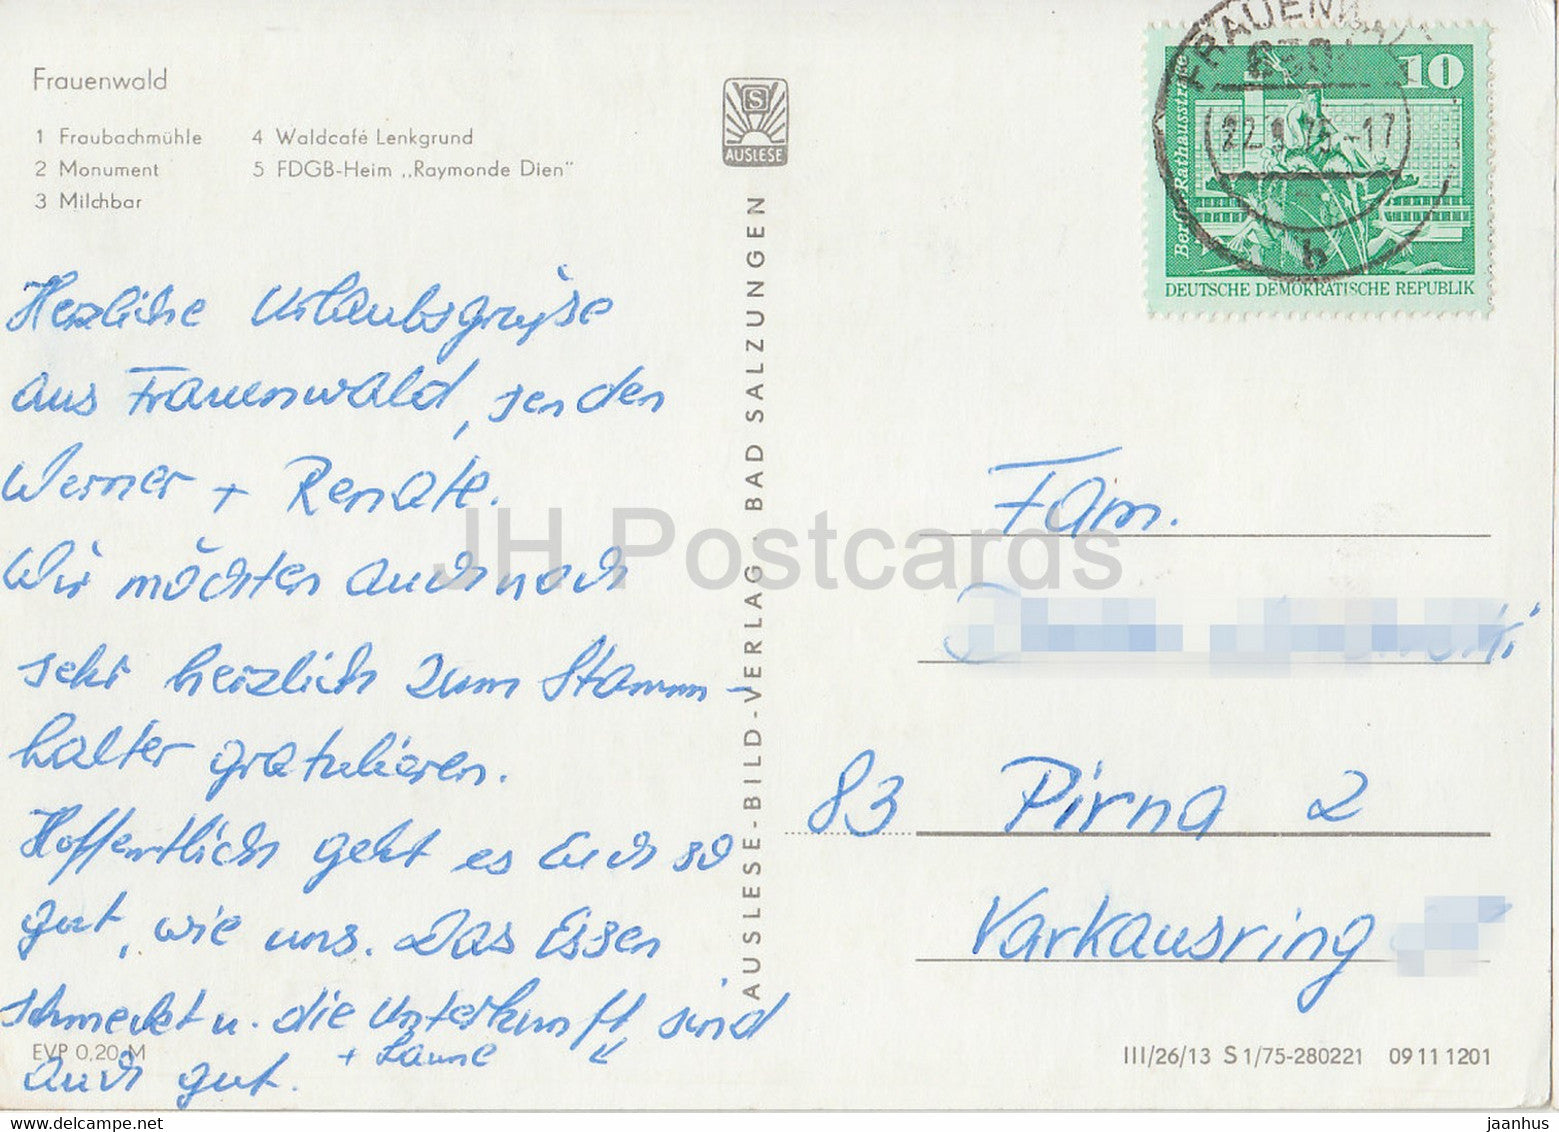 Frauenwald
1 Fraubachmühle
2 Monument
3 Milchbar
4 Waldcafé Lenkgrund
5 FDGB-Heim „Raymonde Dien"
S
AUSLESE
AUSLESE-BILD-VERLAG · BAD SALZUNGEN
10
DEUTSCHE DEMOKRATISCHE REPUBLIK
b
Herzliche Urlaubsgrüße
aus Frauenwald, senden
Werner + Renate.
Wir möchten auch noch
sehr herzlich zum Stamm-
halter gratulieren.
Hoffentlich geht es Euch so
gut, wie uns. Das Essen
schmeckt u. die Unterkunft sind
+ Laune
auch gut.
Fam.
83 Pirna 2
Varkausring
EVP 0,20 M
III/26/13 S 1/75-280221 09 11 1201
JH Postcards
www.delcampe.net
jaanhus